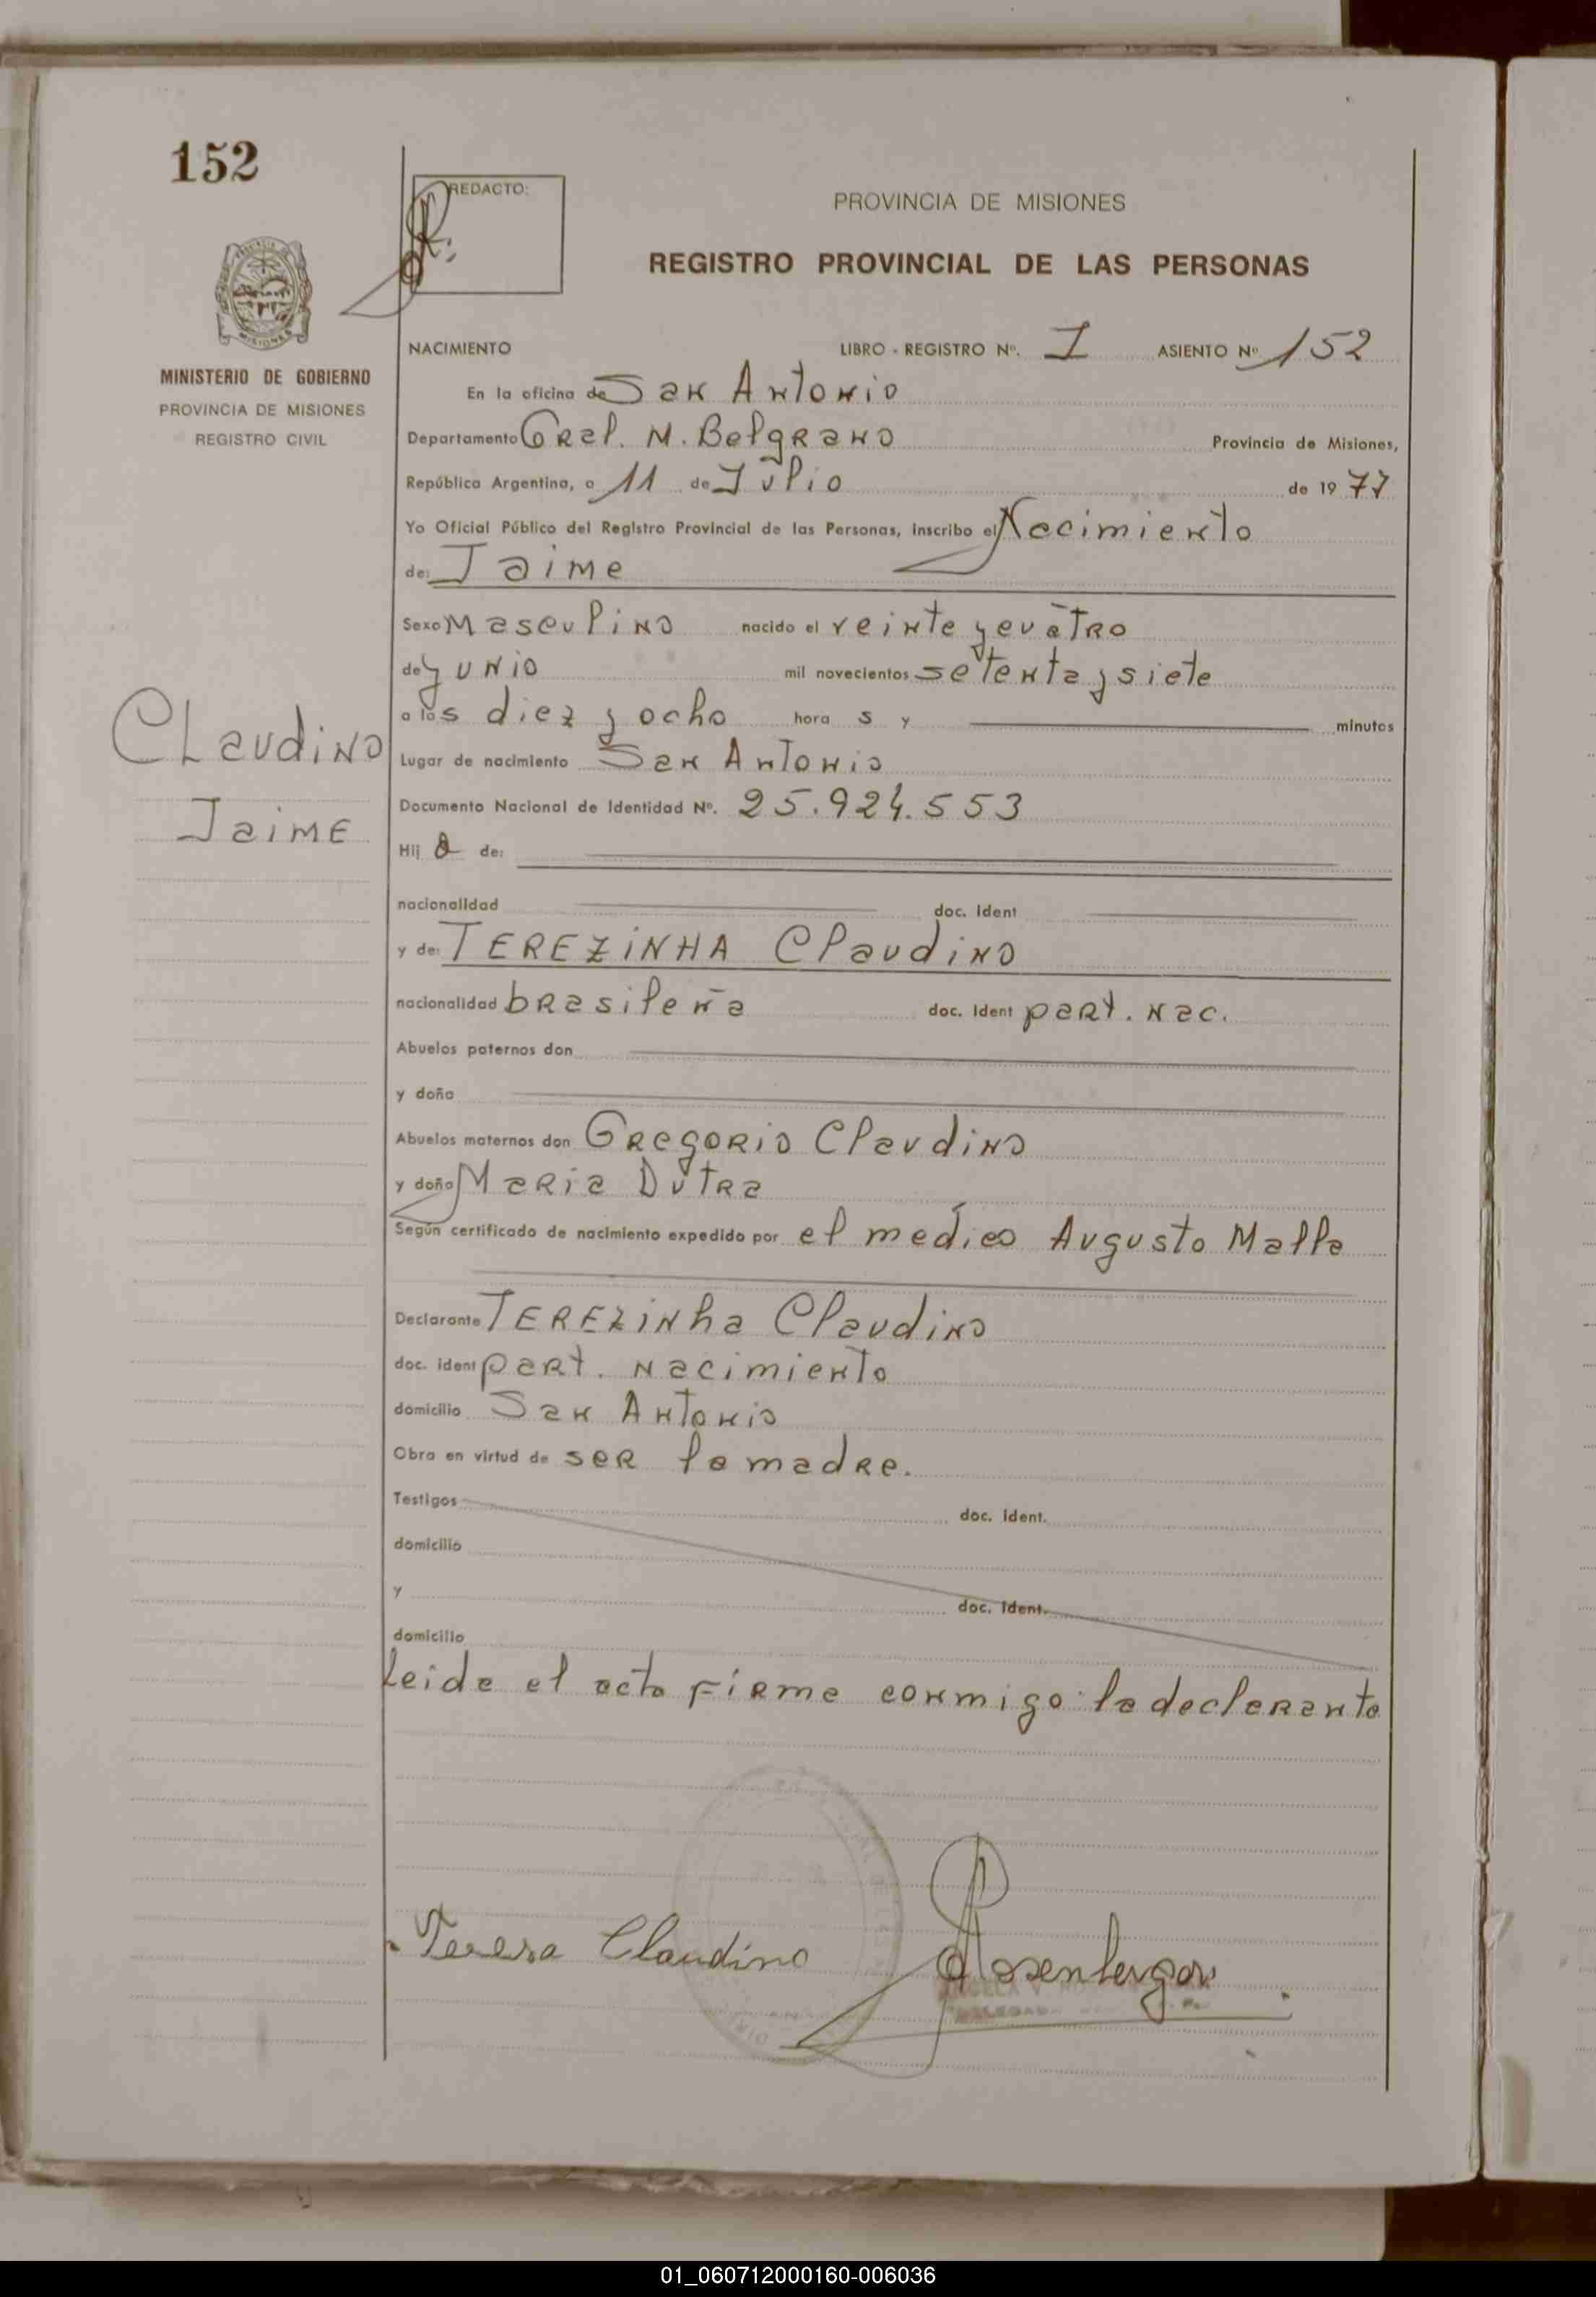 152
REDACTO:
PROVINCIA DE MISIONES
REGISTRO PROVINCIAL DE LAS PERSONAS
MISIONES
MINISTERIO DE GOBIERNO
PROVINCIA DE MISIONES
REGISTRO CIVIL
NACIMIENTO LIBRO - REGISTRO Nº. I ASIENTO Nº 152
En la oficina de San Antonio
Departamento Gral. M. Belgrano Provincia de Misiones,
República Argentina, a 11 de Julio de 1977
Yo Oficial Público del Registro Provincial de las Personas, inscribo el Nacimiento
de: Jaime
Sexo Masculino nacido el veinte y cuatro
de junio mil novecientos setenta y siete
a las diez y ocho hora s y minutos
Claudino
Jaime
Lugar de nacimiento San Antonio
Documento Nacional de Identidad Nº. 25.924.553
Hij o de:
nacionalidad doc. ident
y de: TEREZINHA Claudino
nacionalidad brasileña doc. ident part. nac.
Abuelos paternos don
y doña
Abuelos maternos don Gregorio Claudino
y doña Maria Dutra
Según certificado de nacimiento expedido por el medico Augusto Malla
Declarante TEREZINha Claudino
doc. ident part. nacimiento
domicilio San Antonio
Obra en virtud de ser la madre.
Testigos doc. ident.
domicilio
y doc. ident.
domicilio
Leida el acta firma conmigo la declarante
Teresa Claudino
01_060712000160-006036